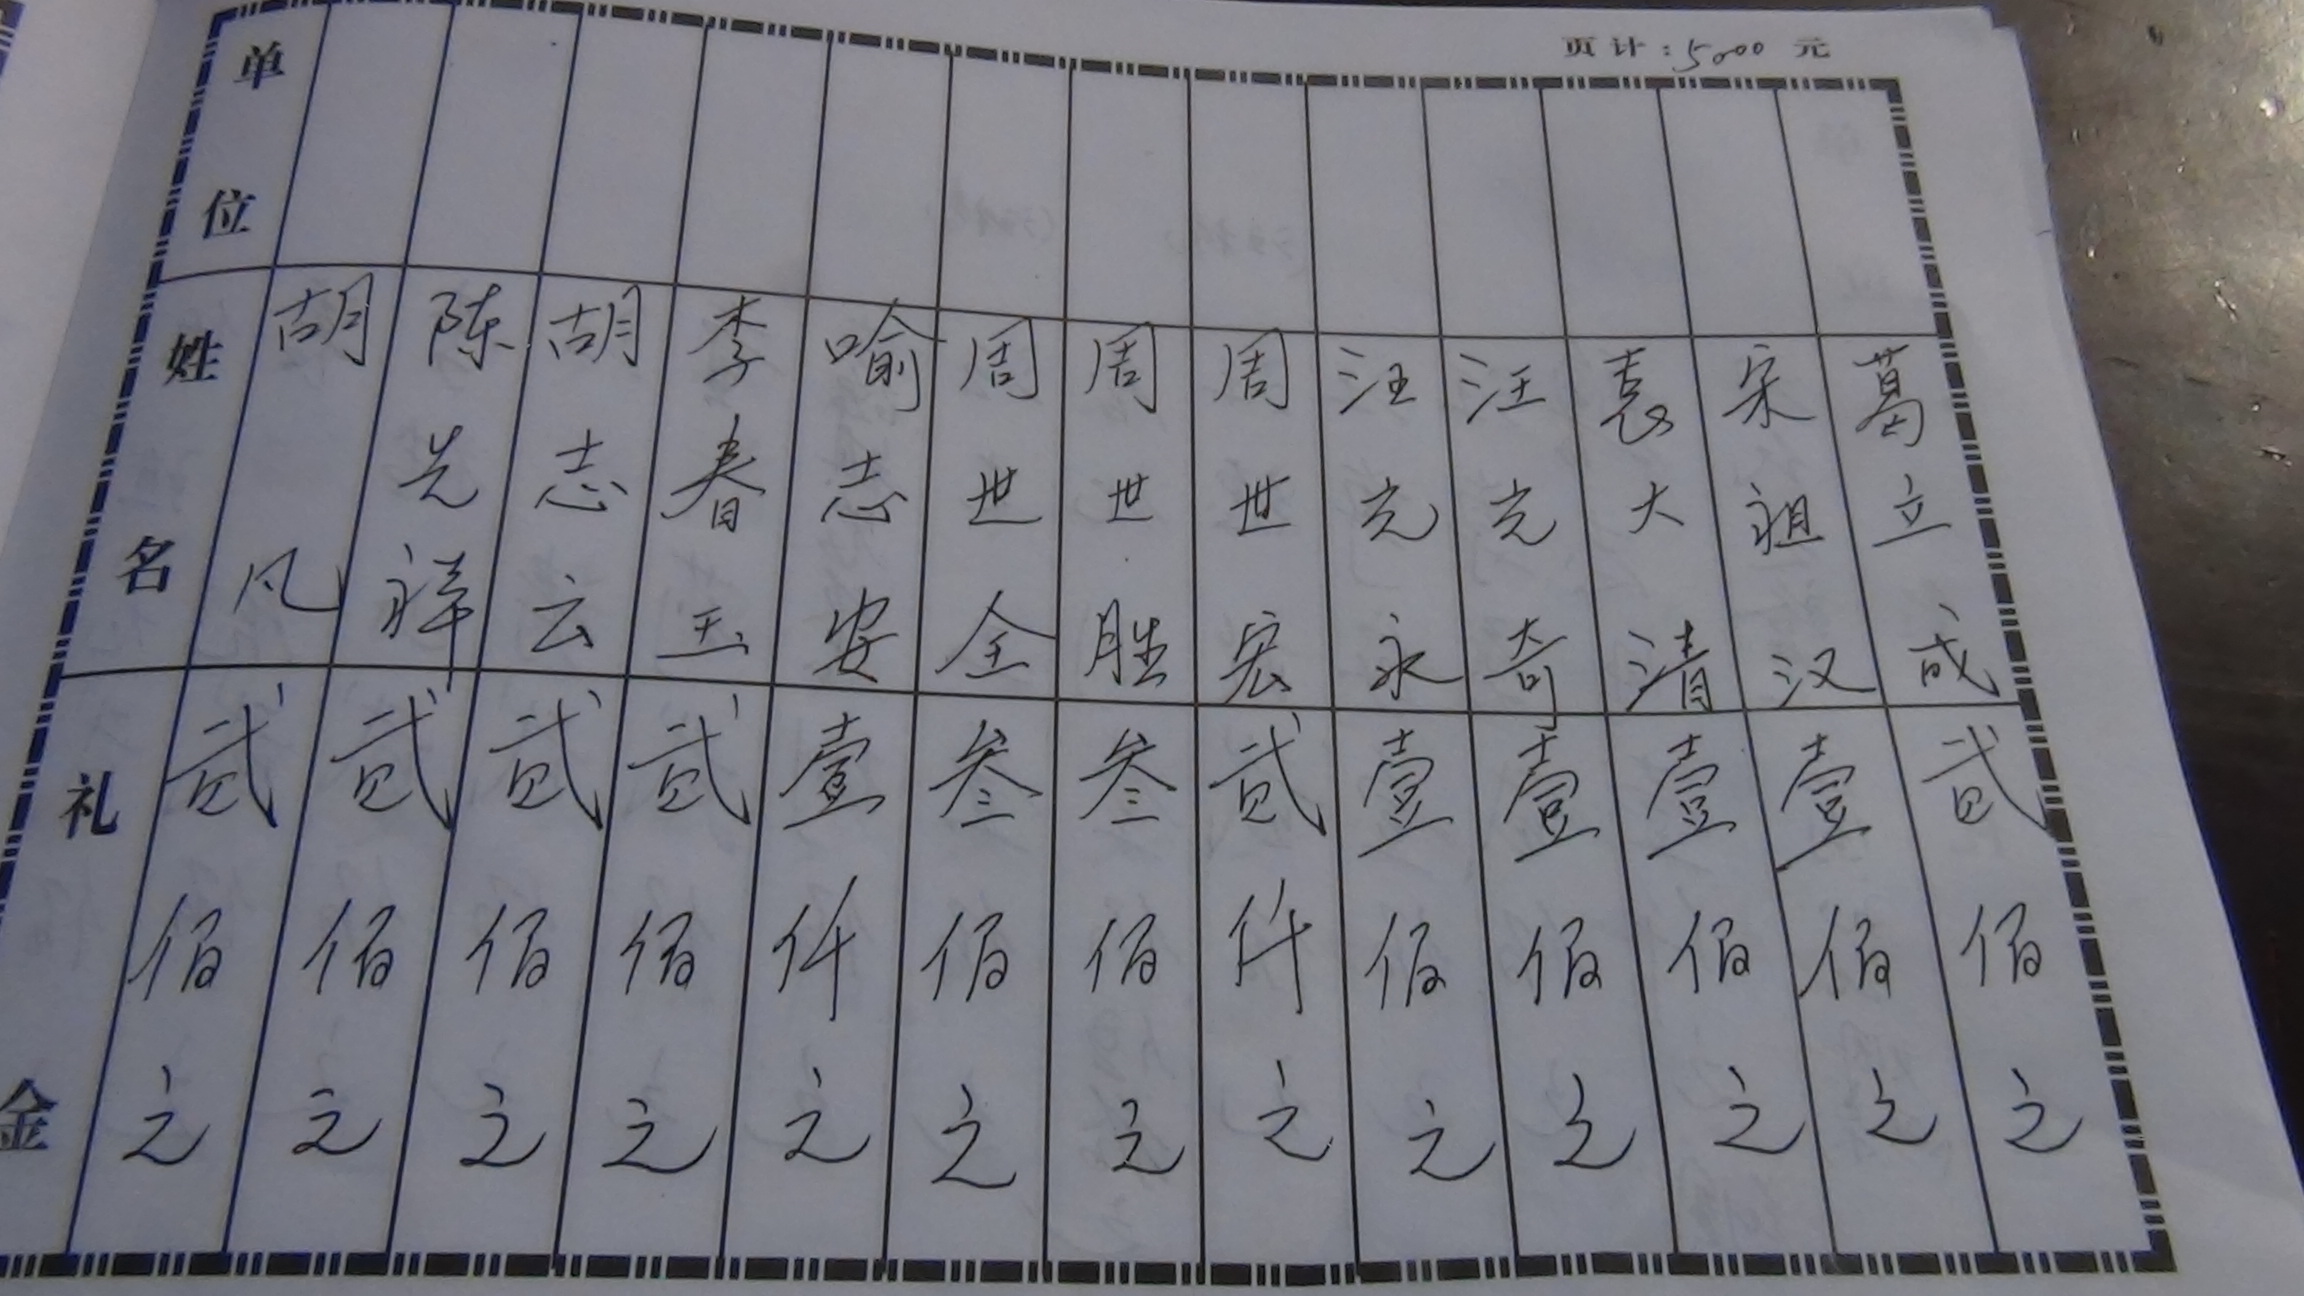 页计：5000 元
单位
姓名
礼金
胡凡 贰佰元
陈先祥 贰佰元
胡志云 贰佰元
李春玉 贰佰元
喻志安 壹仟元
周世全 叁佰元
周世胜 叁佰元
周世宏 贰仟元
汪光永 壹佰元
汪光奇 壹佰元
袁大清 壹佰元
宋祖汉 壹佰元
葛立成 贰佰元